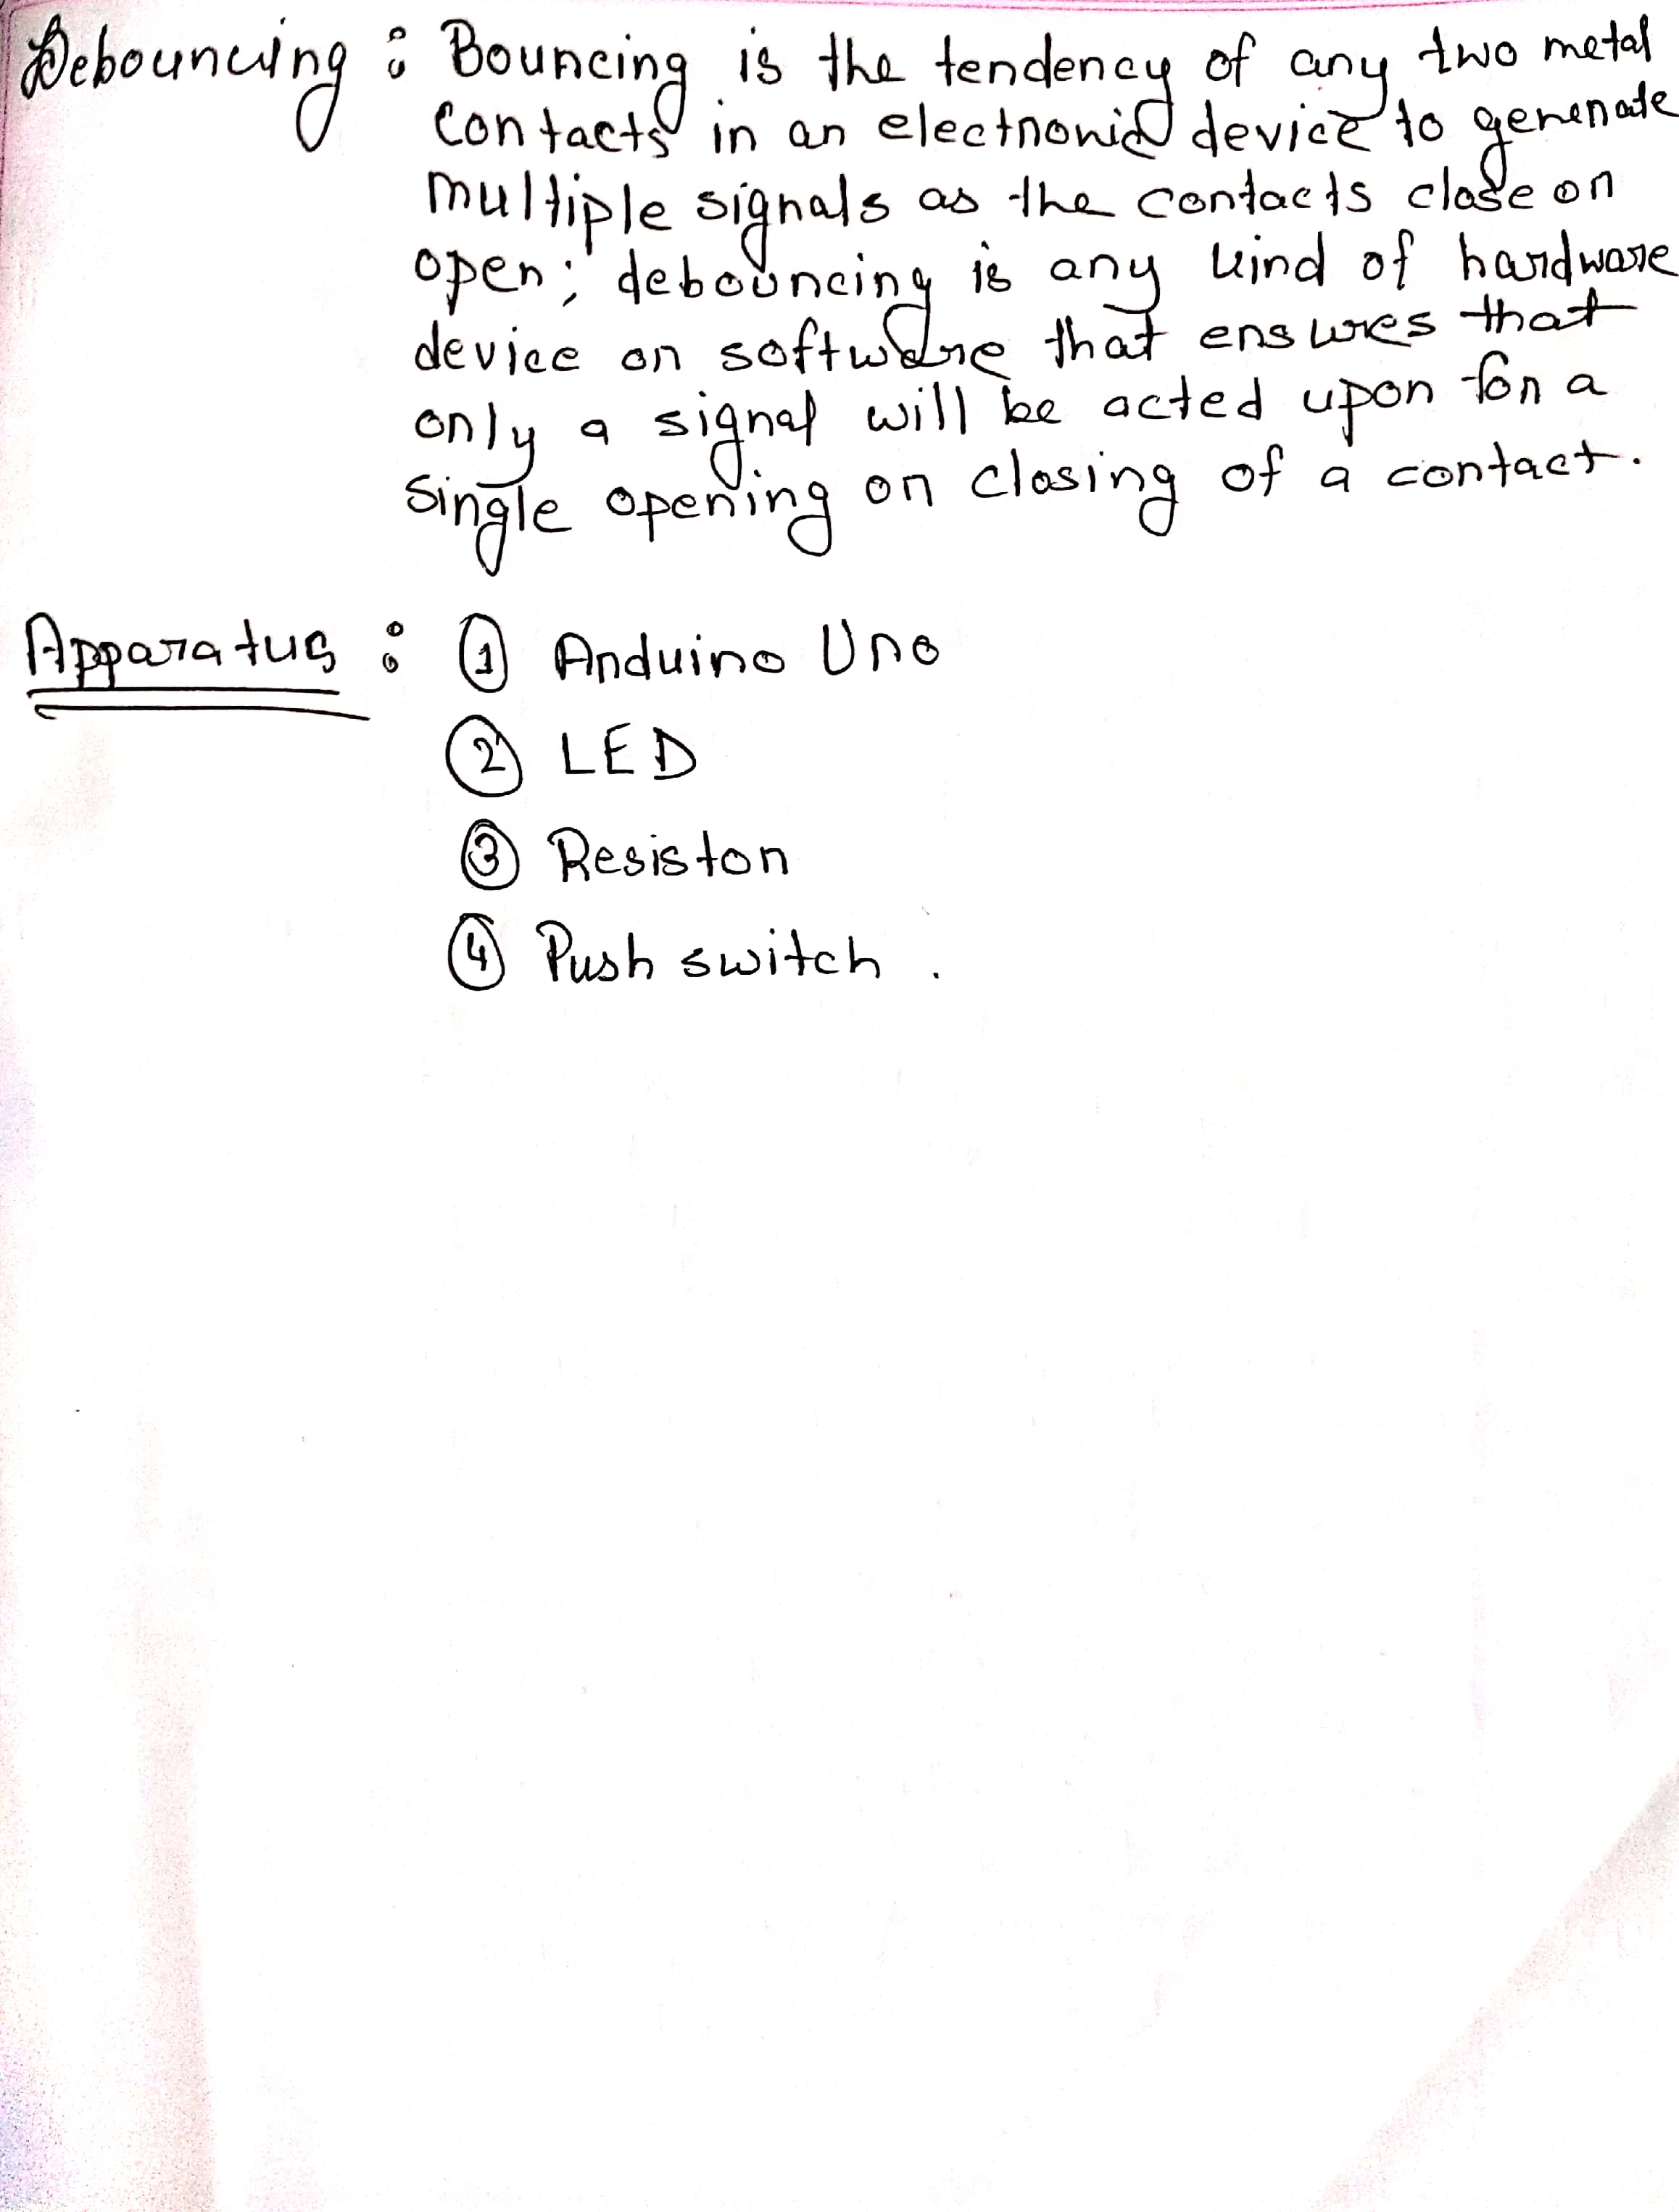 Debouncing : Bouncing is the tendency of any two metal
contacts in an electronic device to generate
multiple signals as the contacts close or
open; debouncing is any kind of hardware
device or software that ensures that
only a signal will be acted upon for a
single opening or closing of a contact.
Apparatus : ① Arduino Uno
② LED
③ Resistor
④ Push switch .